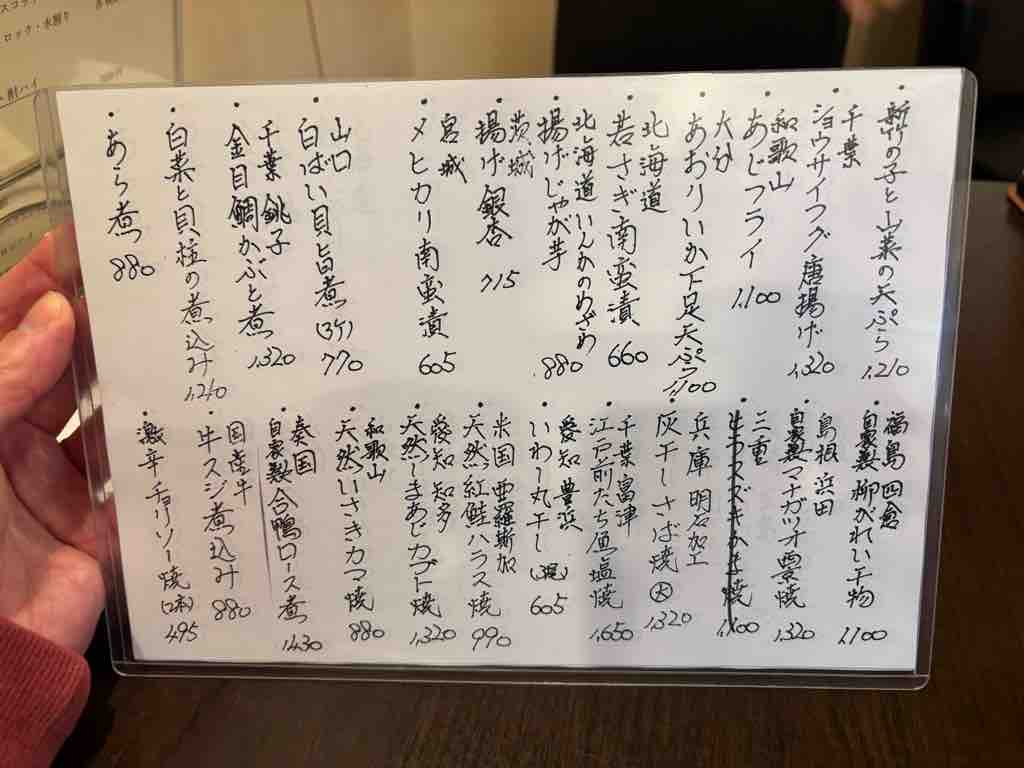 ・新竹の子と山菜の天ぷら 1,210
千葉
・ショウサイフグ唐揚げ 1,320
和歌山
・あじフライ 1,100
大分
・あおりいか下足天ぷら 1,100
北海道
・若さぎ南蛮漬 660
北海道いんかのめざめ
・揚げじゃが芋 880
茨城
・揚げ銀杏 715
宮城
・メヒカリ南蛮漬 605
山口
・白ばい貝旨煮(3ケ) 770
千葉 銚子
・金目鯛かぶと煮 1,320
・白菜と貝柱の煮込み 1,210
・あら煮 880
福島 四倉
・自家製柳がれい干物 1,100
島根 浜田
・自家製マナガツオ西京焼 1,320
三重
1,100
兵庫 明石加工
・灰干しさば焼(大) 1,320
千葉 富津
・江戸前たち魚塩焼 1,650
愛知 豊浜
・いわし丸干し(3尾) 605
米国 亜羅斯加
・天然紅鮭ハラス焼 990
愛知 知多
・天然しまあじカブト焼 1,320
和歌山
・天然いさきカマ焼 880
泰国
・自家製合鴨ロース煮 1,430
国産牛
・牛スジ煮込み 880
・激辛チョリソー焼(2本) 495
ロック・水割り